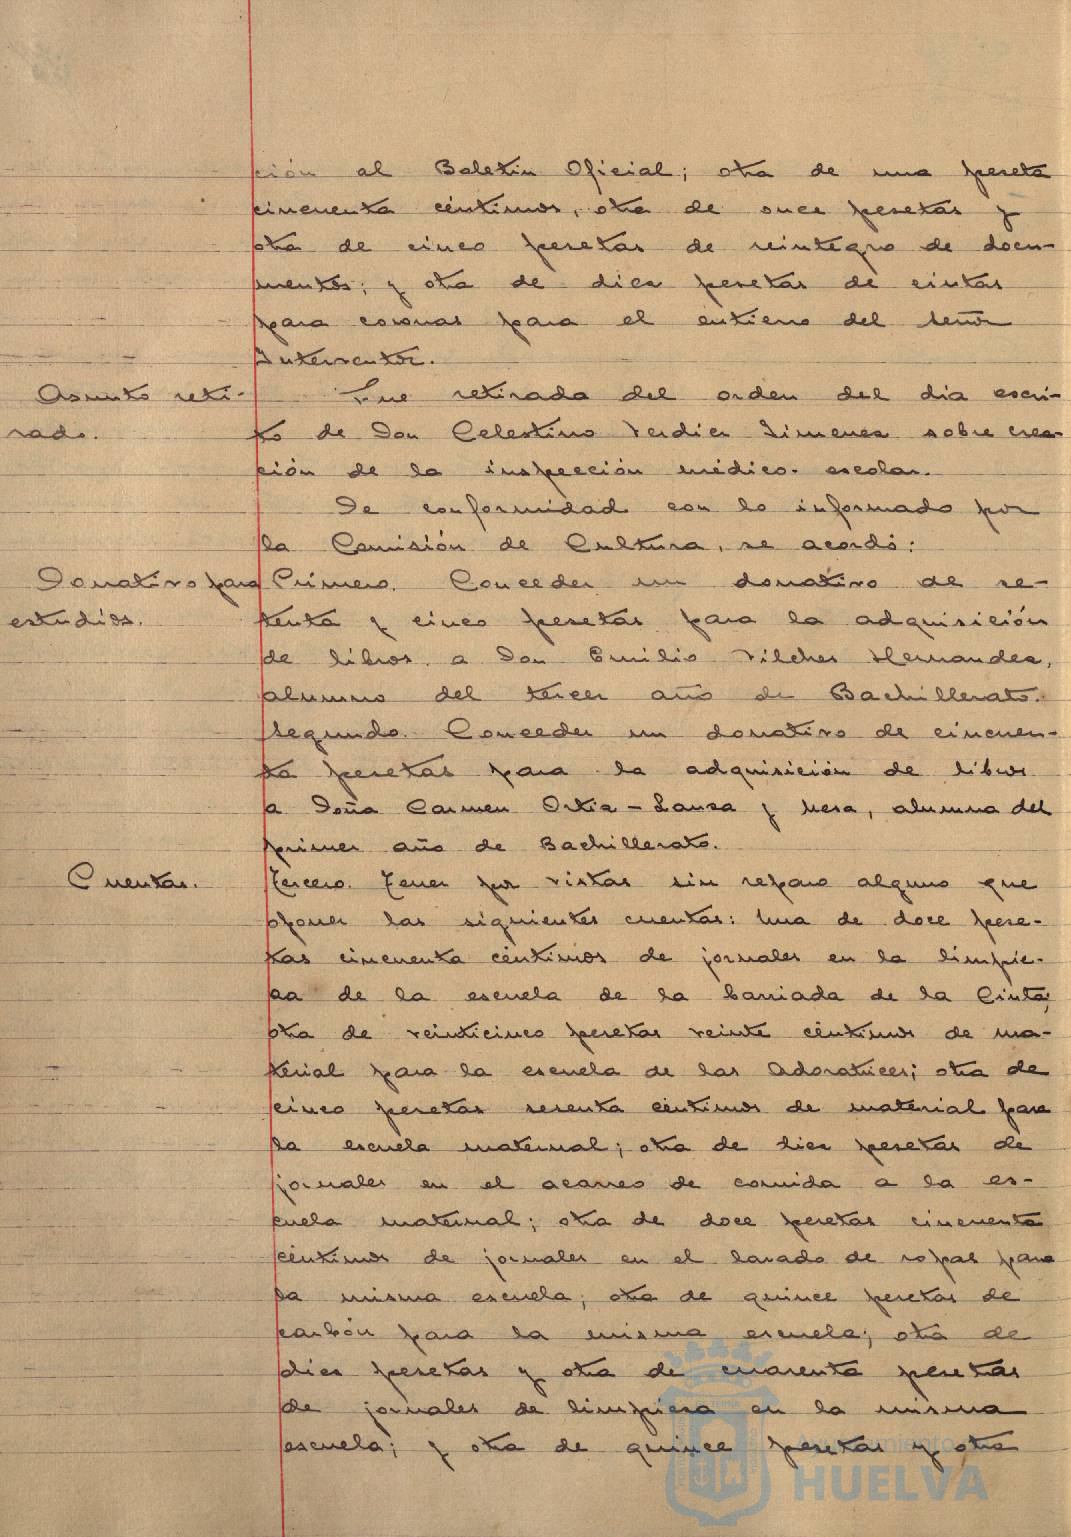 ción al Boletin Oficial; otra de una peseta
cincuenta céntimos, otra de once pesetas y
otra de cinco pesetas de reintegro de docu-
mentos; y otra de diez pesetas de cintas
para coronas para el entierro del señor
Interventor.
Asunto reti-
rado.
Fue retirada del orden del dia escri-
to de Don Celestino Verdier Jimenez sobre crea-
ción de la inspección médico-escolar.
De conformidad con lo informado por
la Comisión de Cultura, se acordó:
Donativo para
estudios.
Primero. Conceder un donativo de se-
tenta y cinco pesetas para la adquisición
de libros a Don Emilio Vilches Hernandez,
alumno del tercer año de Bachillerato.
Segundo. Conceder un donativo de cincuen-
ta pesetas para la adquisición de libros
a Doña Carmen Ortiz-Lanza y , alumna del
primer año de Bachillerato.
Cuentas.
Tercero. Tener por vistas sin reparo alguno que
oponer las siguientes cuentas: Una de doce pese-
tas cincuenta céntimos de jornales en la limpie-
za de la escuela de la barriada de la Cinta;
otra de veinticinco pesetas veinte céntimos de ma-
terial para la escuela de las Adoratrices; otra de
cinco pesetas sesenta céntimos de material para
la escuela maternal; otra de diez pesetas de
jornales en el acarreo de comida a la es-
cuela maternal; otra de doce pesetas cincuenta
céntimos de jornales en el lavado de ropas para
la misma escuela; otra de quince pesetas de
carbón para la misma escuela; otra de
diez pesetas y otra de cuarenta pesetas
de jornales de limpieza en la misma
escuela; y otra de quince pesetas y otra
Ayuntamiento de
HUELVA